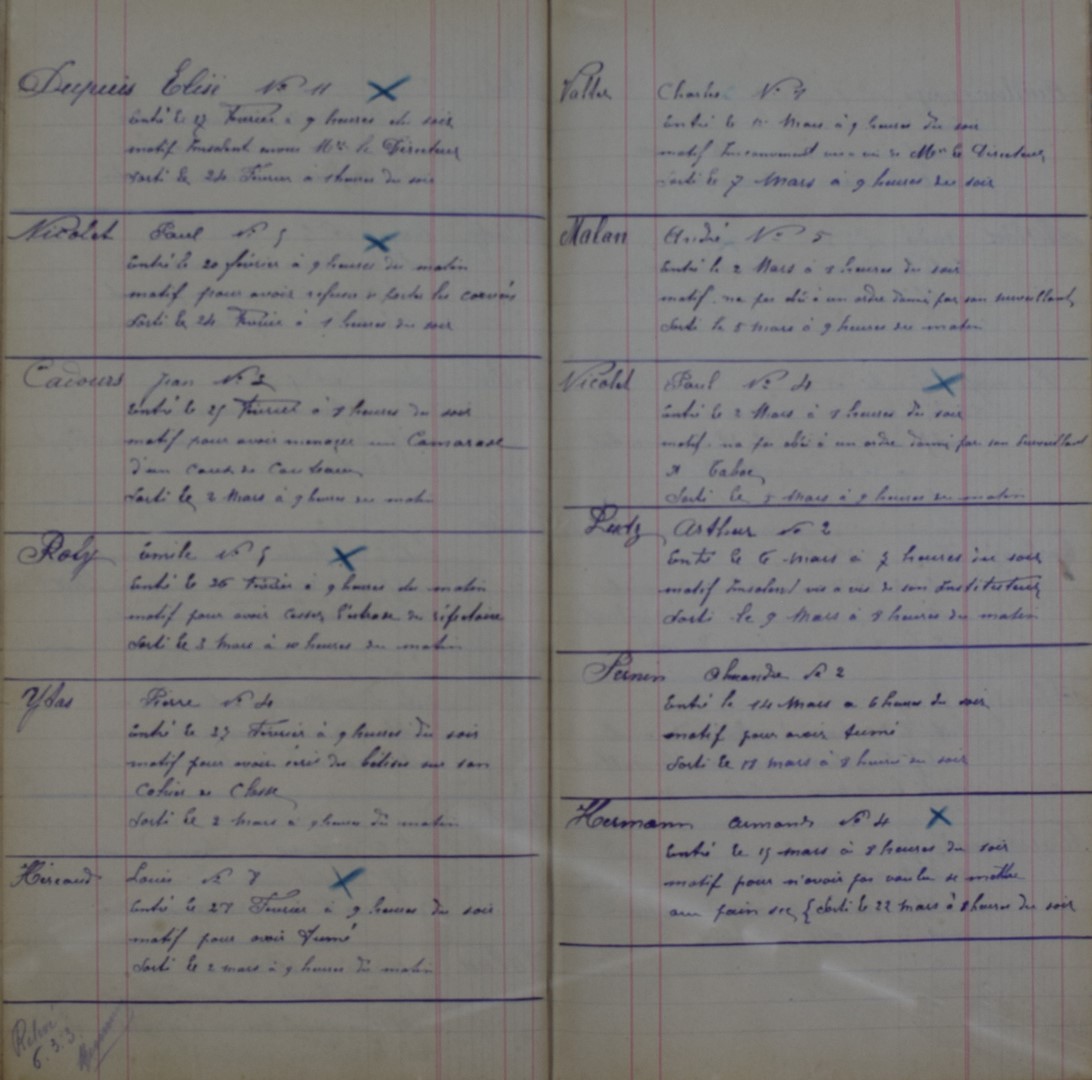 Dupuis Elisé No 11
Entré le 17 Fevrier à 9 heures du soir
motif Insolent envers Mr le Directeur
Sorti le 24 Fevrier à 1 heures du soir
Nicolet Paul No 5
Entré le 20 février à 9 heures du matin
motif pour avoir refuser de porter les corvées
Sorti le 24 Fevrier à 1 heures du soir
Cadours Jean No 2
Entré le 25 Fevrier à 8 heures du soir
motif pour avoir menaçer un Camarade
d'un coup de Couteau
Sorti le 2 Mars à 9 heures du matin
Roly Emile No 5
Entré le 26 Fevrier à 9 heures du matin
motif pour avoir casser du réfectoire
Sorti le 3 Mars à 10 heures du matin
Pierre No 4
Entré le 27 Fevrier à 9 heures du soir
motif pour avoir écrit des bêtises sur son
Cahier de Classe
Sorti le 2 mars à 9 heures du matin
Héreaud Louis No 8
Entré le 27 Fevrier à 9 heures du soir
motif pour avoir fumé
Sorti le 2 mars à 9 heures du matin
6.3.3
Valter Charles No 4
Entré le Mars à 9 heures du soir
motif vis a vis de Mr le Directeur
Sorti le 7 Mars à 9 heures du soir
Malan André No 5
Entré le 2 Mars à 8 heures du soir
motif na pas obéi à un ordre donné par son surveillant
Sorti le 5 mars à 9 heures du matin
Nicolet Paul No 4
Entré le 2 Mars à 8 heures du soir
motif na pas obéi à un ordre donné par son surveillant
Sorti le 5 Mars à 9 heures du matin
Lutz Arthur No 2
Entré le 6 Mars à 7 heures du soir
motif Insolent vis a vis de son Institituteur
Sorti le 9 Mars à 8 heures du matin
Perrin No 2
Entré le 14 Mars a 6 heures du soir
motif pour avoir fumé
Sorti le 18 mars à 8 heures du soir
Hermann armand No 4
Entré le 19 mars à 8 heures du soir
motif pour n'avoir pas voulu se mettre
au pain sec { Sorti le 22 mars à 8 heures du soir